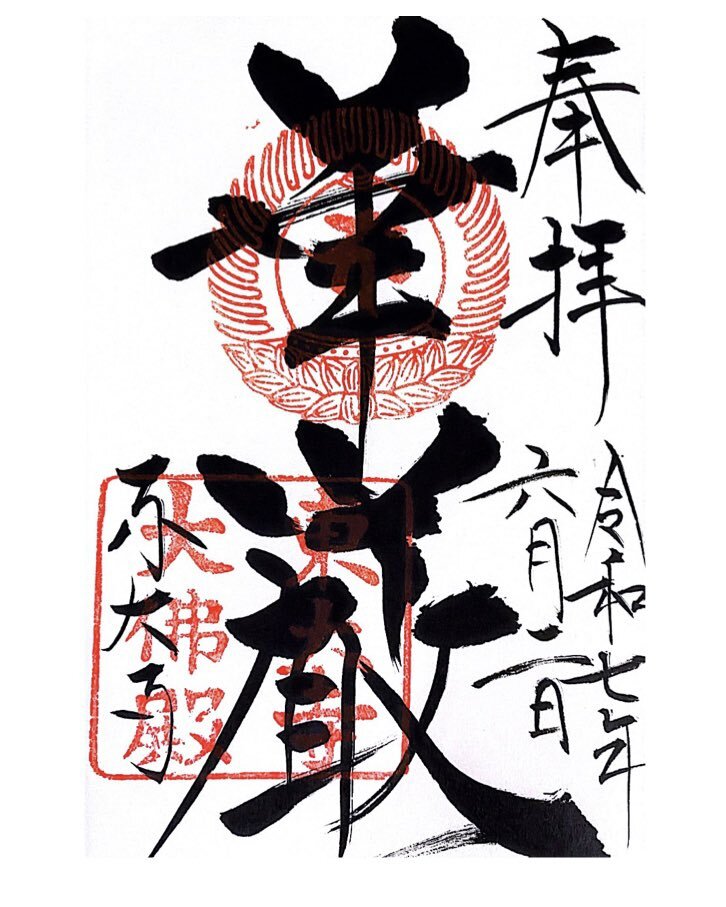 奉拝
令和七年
六月二日
華厳
東大寺
東大寺
大佛殿